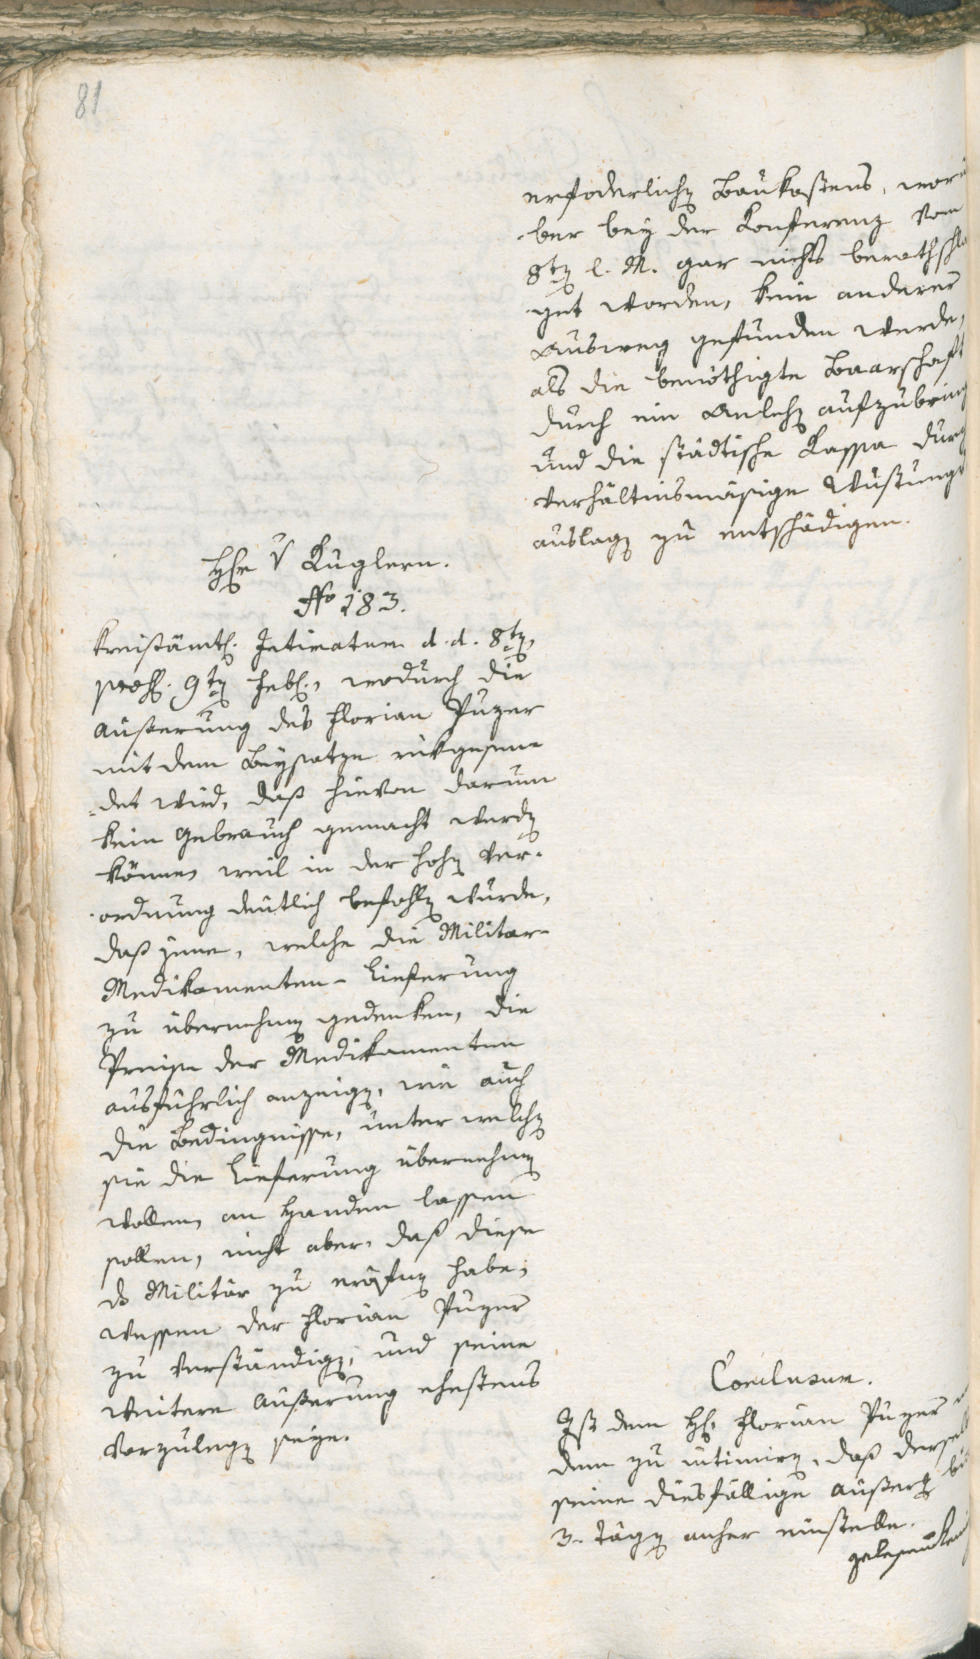 81
erfoderlichen Baukostens, worü
-ber bey der Konferenz vom
8ten l. M. gar nichts berathschla
-get worden, kein anderer
Ausweg gefunden werde,
als die benöthigte Baarschaft
durch ein Anlehen aufzubring
und die städtische Kassa durch
verhältnismäsige
auslagen zu entschädigen.
Herr v Kuglern.
No 183.
Kreisämtl. Intimatum d. d. 8ten,
praes. 9ten Feb., wodurch die
Äußerung des Florian Puzer
mit dem Beysatze rükgesen
-det wird, daß hievon darum
kein Gebrauch gemacht werden
könne, weil in der hohen Ver-
-ordnung deutlich befohlen wurde,
daß jene, welche die Militar-
Medikamenten-Lieferung
zu übernehmen gedenken, die
Preise der Medikamenten
ausführlich anzeigen, wie auch
die Bedingnisse, unter welchen
sie die Lieferung übernehmen
wollen, an Handen lassen
sollen, nicht aber, daß diese
das Militär zu eräfnen habe;
wessen der Florian Puzer
zu verständigen, und seine
weitere Äußerung ehestens
vorzulegen seye.
Conclusum.
Ist dem H. Florian Puzer
dem zu intimiren, daß dersel
seine diesfällige Äußerg
3. Tägen anher einstelle.